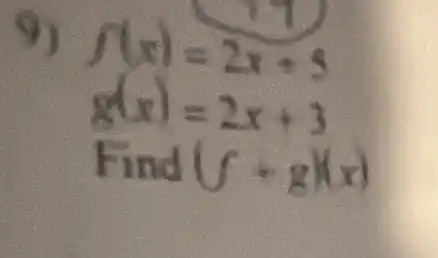 9) f(x) = 2x + 5
g(x) = 2x + 3
Find (f + g)(x)